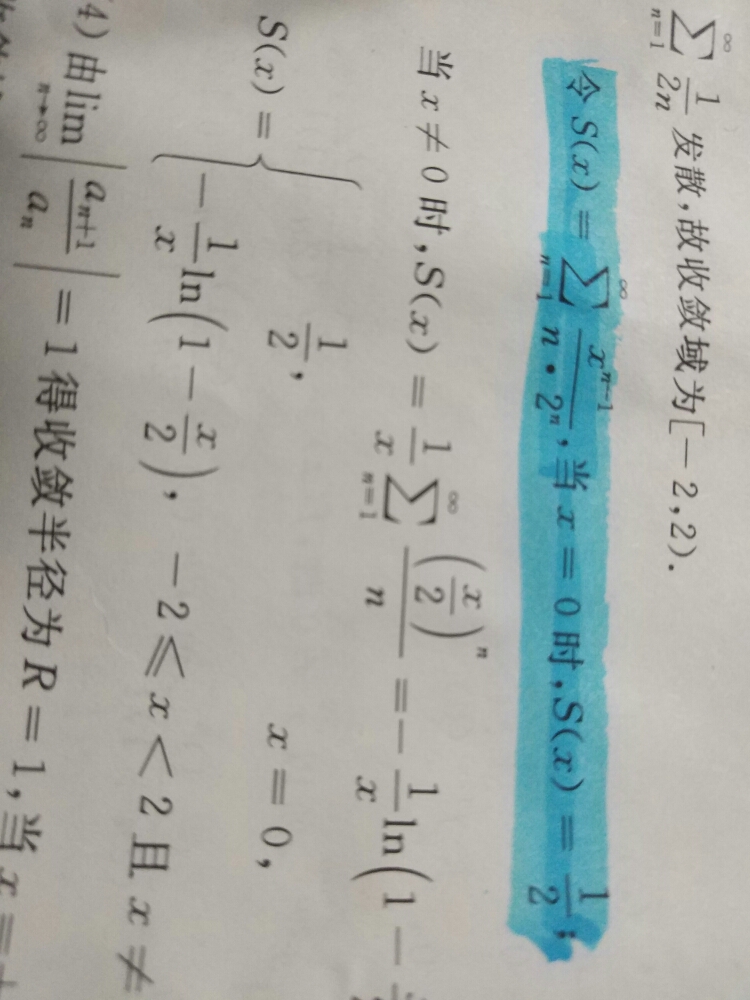 $\sum_{n=1}^{\infty} \frac{1}{2n}$ 发散,故收敛域为[-2,2).
令 $S(x) = \sum_{n=1}^{\infty} \frac{x^{n-1}}{n \cdot 2^n}$,当 $x = 0$ 时,$S(x) = \frac{1}{2}$;
当 $x \neq 0$ 时,$S(x) = \frac{1}{x} \sum_{n=1}^{\infty} \frac{\left(\frac{x}{2}\right)^n}{n} = -\frac{1}{x} \ln\left(1 -$
$S(x) = \begin{cases} \frac{1}{2}, & x = 0, \\ -\frac{1}{x} \ln\left(1 - \frac{x}{2}\right), & -2 \leqslant x < 2 且 x \neq \end{cases}$
4) 由 $\lim_{n \to \infty} \left| \frac{a_{n+1}}{a_n} \right| = 1$ 得收敛半径为 $R = 1$,当 $x =$